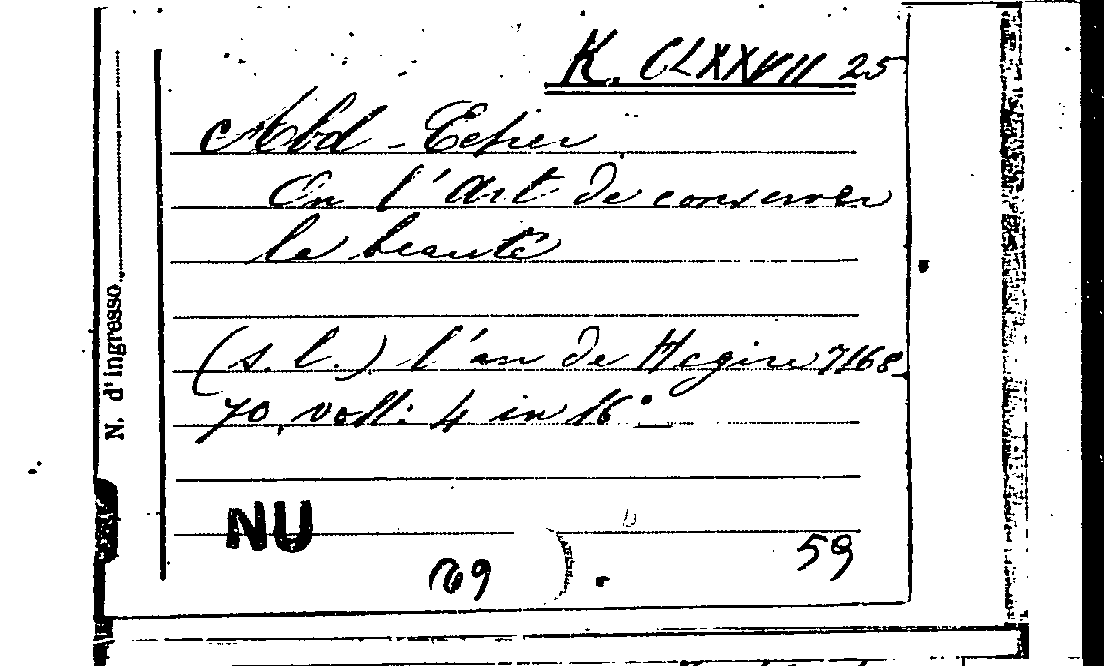 K. CLXXVII 25
Abd-Eeker
Ou l'Art de conserver
la beauté
(s. l.) l'an de Hegire 1168.
70, voll: 4 in 16°
N. d'ingresso
NU
69
59